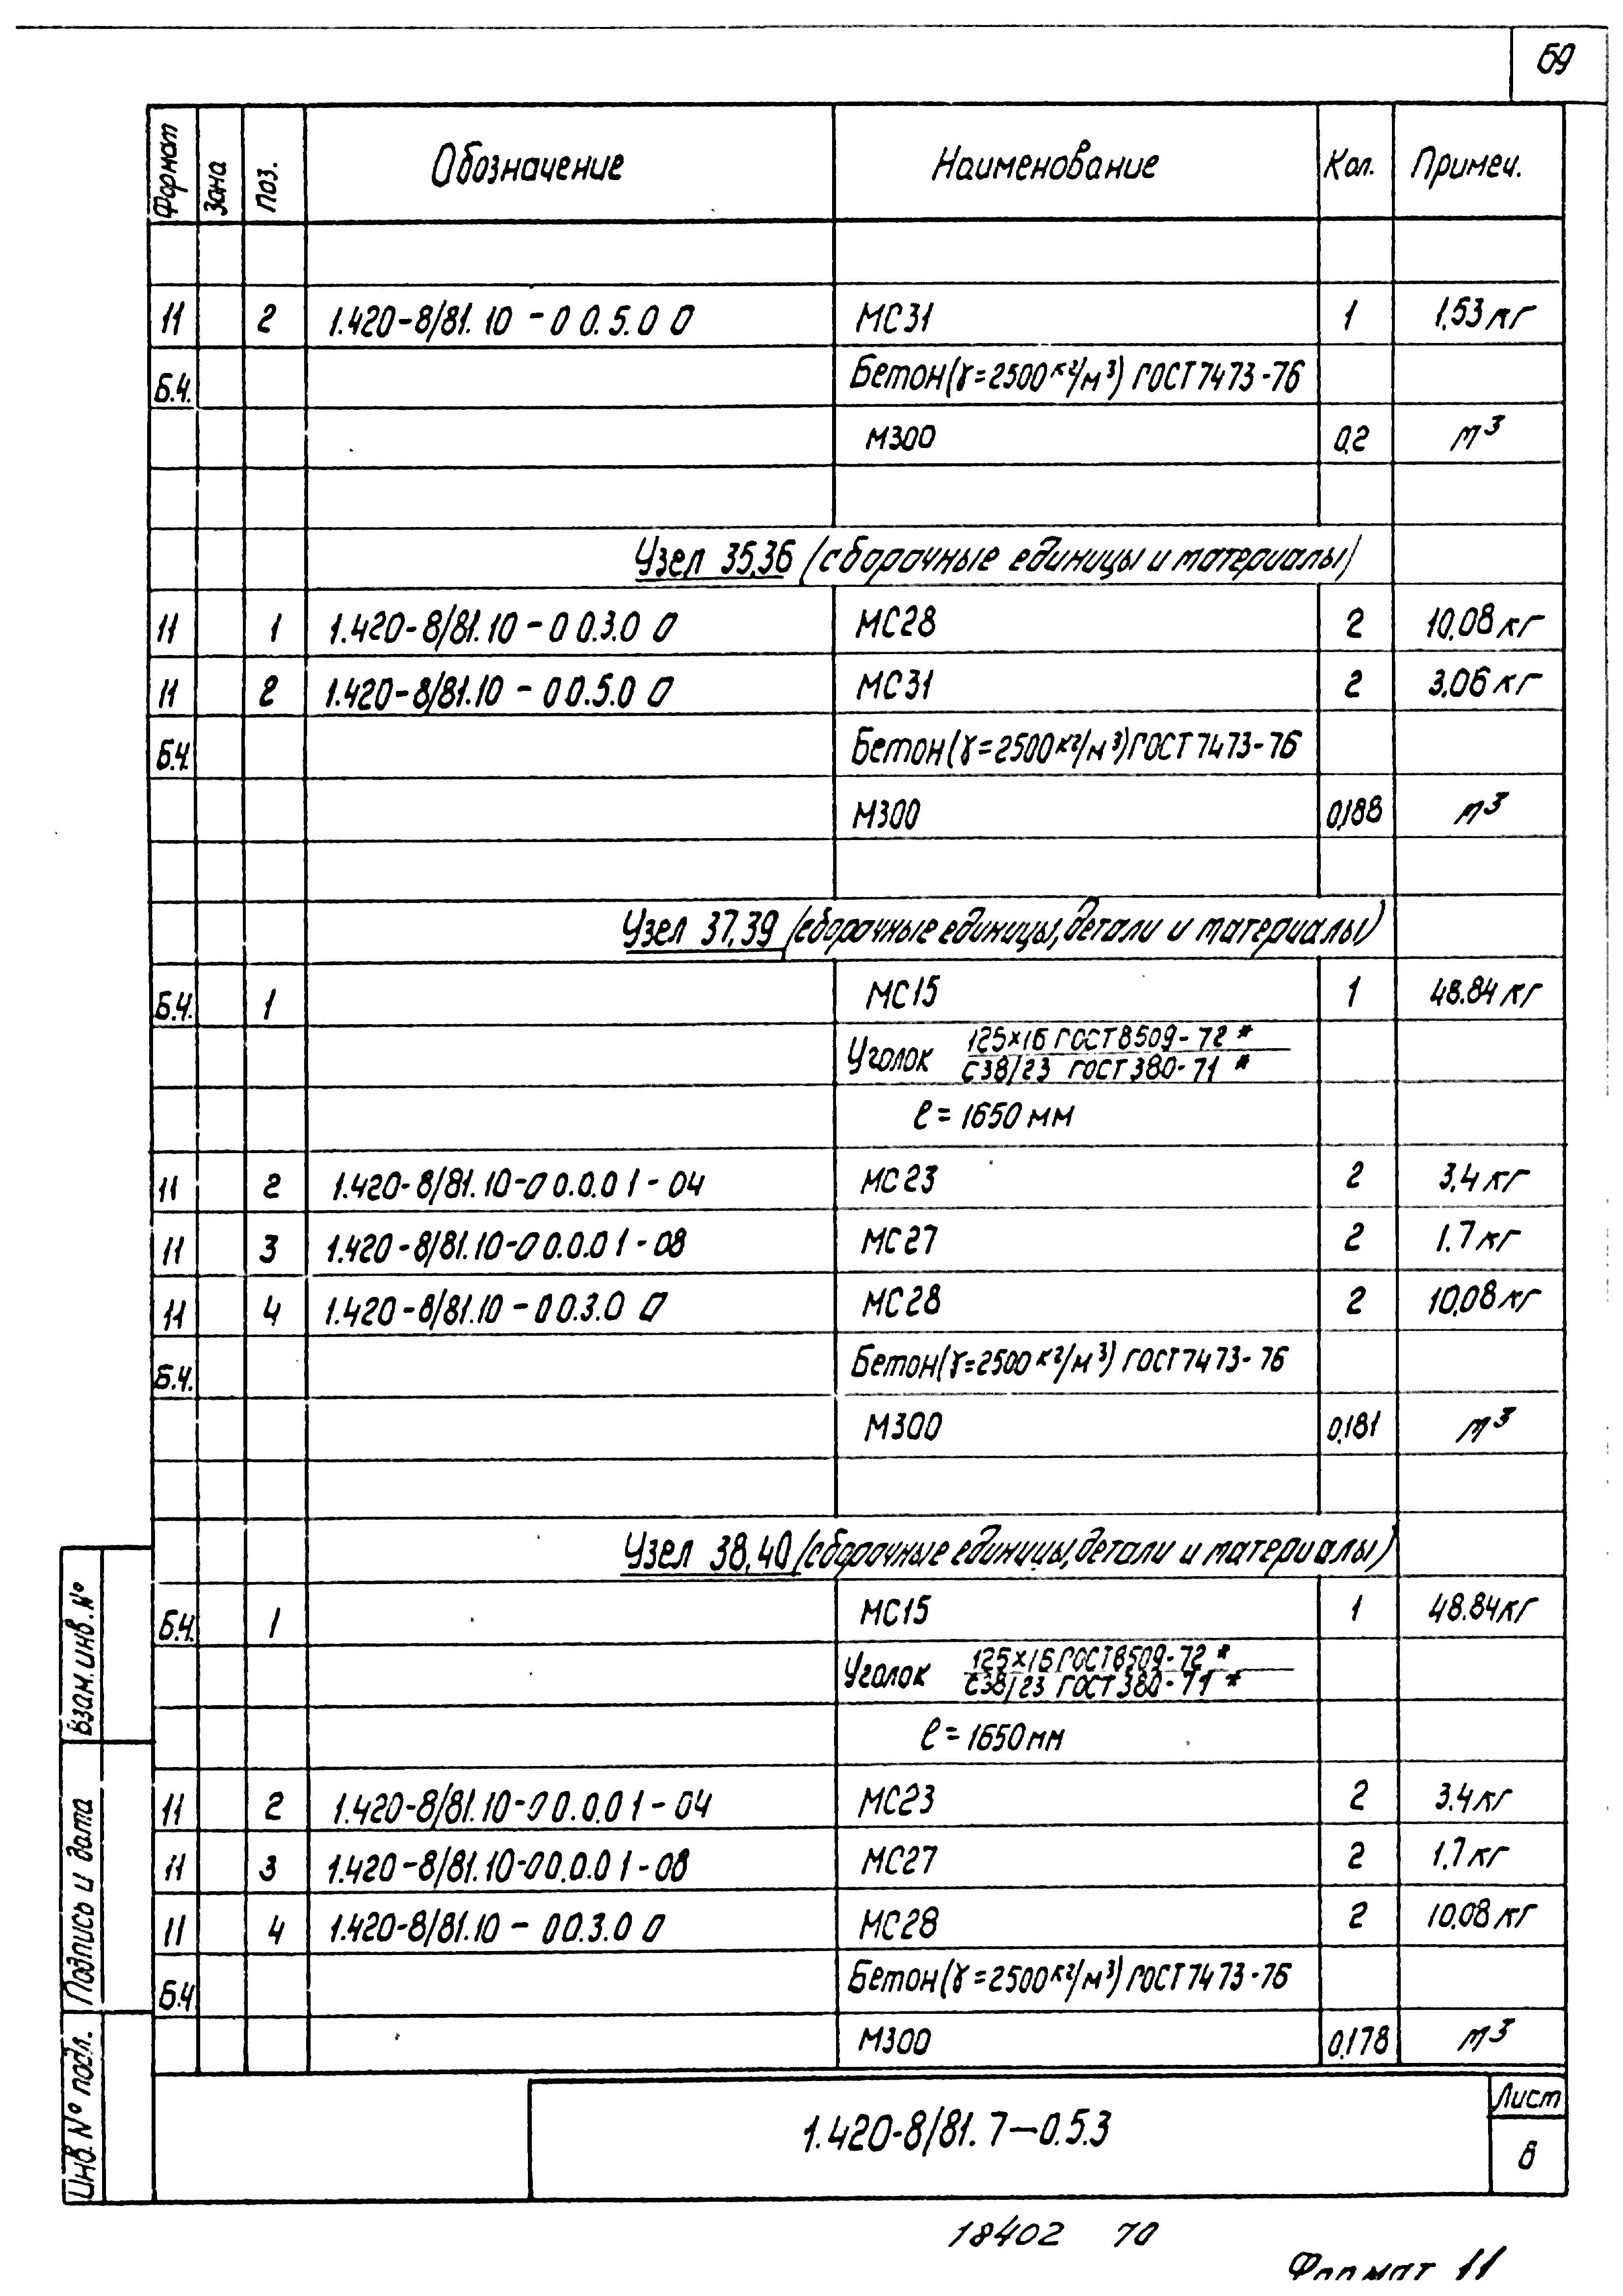 69
Формат Зона Поз. Обозначение Наименование Кол. Примеч.
11 2 1.420-8/81.10-00.5.00 МС31 1 1,53 кг
Б.Ч. Бетон(γ=2500кг/м³) ГОСТ 7473-76
М300 0,2 м³
Узел 35,36 (сборочные единицы и материалы)
11 1 1.420-8/81.10-00.3.00 МС28 2 10,08 кг
11 2 1.420-8/81.10-00.5.00 МС31 2 3,06 кг
Б.Ч. Бетон(γ=2500кг/м³) ГОСТ 7473-76
М300 0,188 м³
Узел 37,39 (сборочные единицы, детали и материалы)
Б.Ч. 1 МС15 1 48.84 кг
Уголок 125×16 ГОСТ 8509-72*
С38/23 ГОСТ 380-71*
ℓ=1650 мм
11 2 1.420-8/81.10-00.0.01-04 МС23 2 3,4 кг
11 3 1.420-8/81.10-00.0.01-08 МС27 2 1.7 кг
11 4 1.420-8/81.10-00.3.00 МС28 2 10,08 кг
Б.Ч. Бетон(γ=2500кг/м³) ГОСТ 7473-76
М300 0,181 м³
Узел 38,40 (сборочные единицы, детали и материалы)
Б.Ч. 1 МС15 1 48.84 кг
Уголок 125×16 ГОСТ 8509-72*
С38/23 ГОСТ 380-71*
ℓ=1650 мм
11 2 1.420-8/81.10-00.0.01-04 МС23 2 3.4 кг
11 3 1.420-8/81.10-00.0.01-08 МС27 2 1.7 кг
11 4 1.420-8/81.10-00.3.00 МС28 2 10,08 кг
Б.Ч Бетон(γ=2500кг/м³) ГОСТ 7473-76
М300 0,178 м³
Взам. инв. №
Подпись и дата
Инв. № подл.
1.420-8/81.7-0.5.3
Лист
8
18402 70
Формат 11